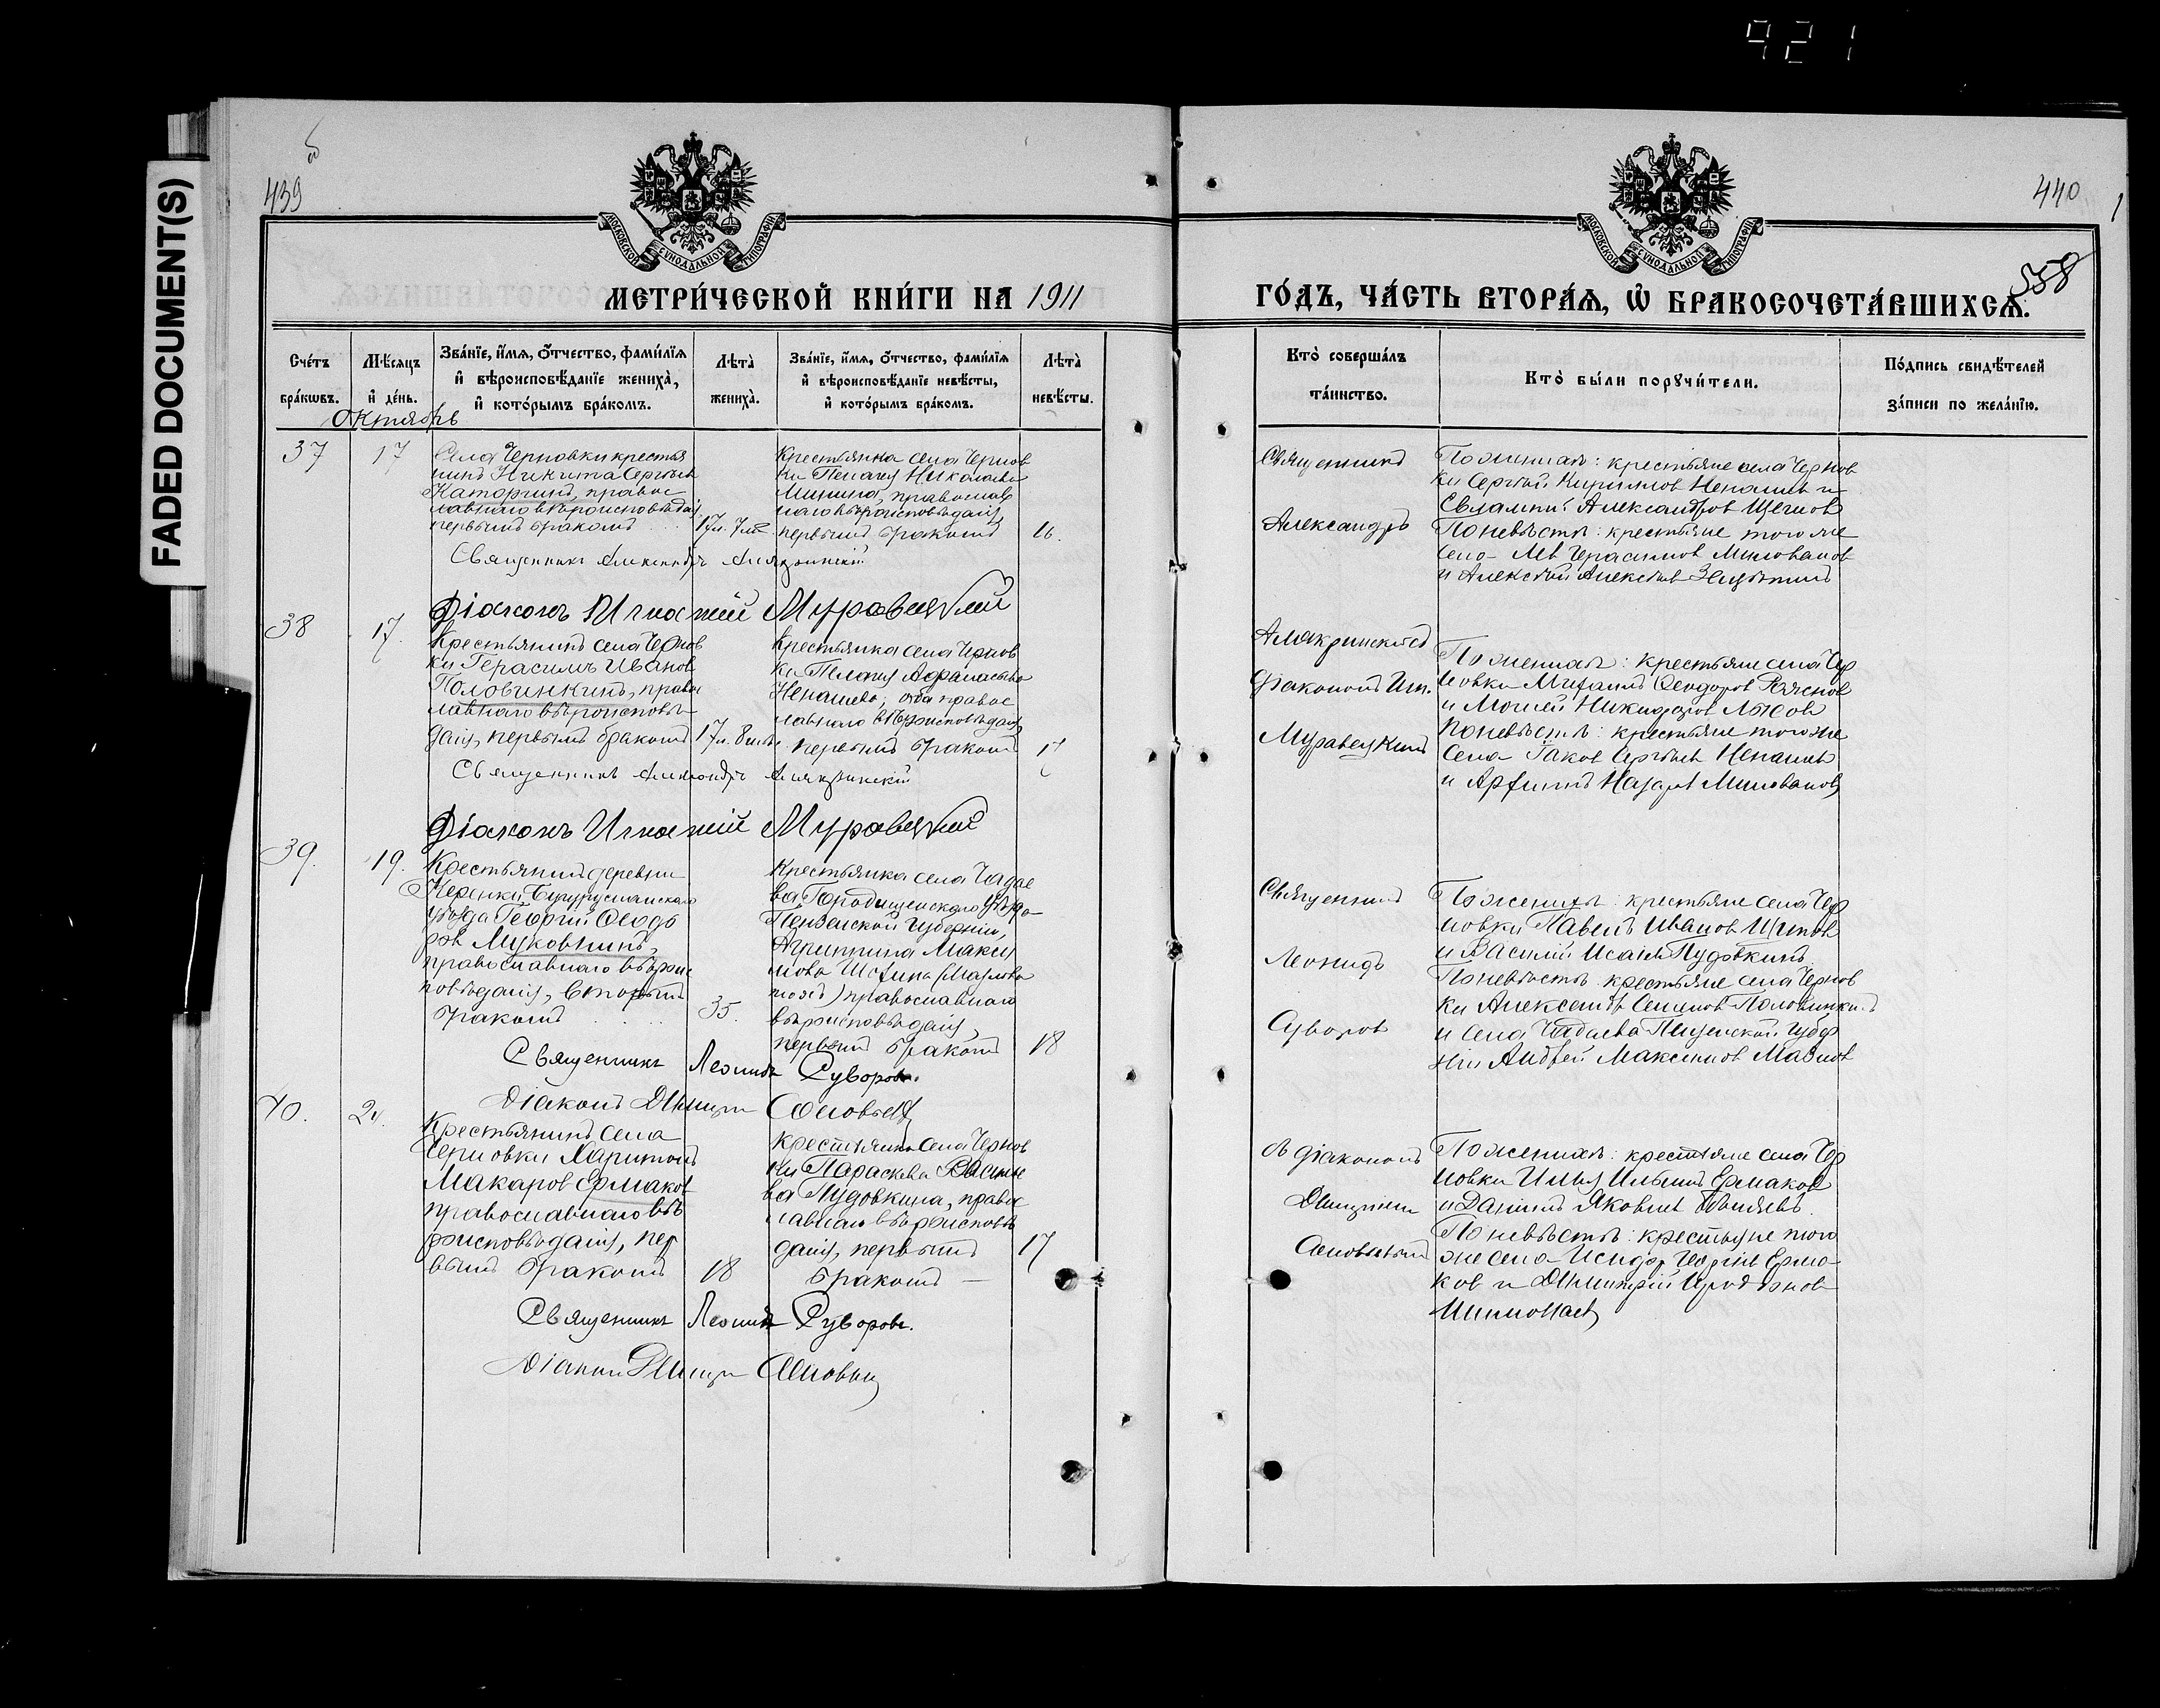 921
FADED DOCUMENT(S)
439
МОСКОВСКОЙ СѴНОДАЛЬНОЙ ТИПОГРАФІИ
МЕТРИ́ЧЕСКОЙ КНИ́ГИ НА 1911
Сче́тъ бра́кѡвъ.
Мѣ́сяцъ и҆ де́нь.
Зва́нїе, и҆́мя, ѻ҆́тчество, фами́лїя и҆ вѣроисповѣ́данїе жениха̀, и҆ кото́рымъ бра́комъ.
Лѣта̀ жениха̀.
Зва́нїе, и҆́мя, ѻ҆́тчество, фами́лїя и҆ вѣроисповѣ́данїе невѣ́сты, и҆ кото́рымъ бра́комъ.
Лѣта̀ невѣ́сты.
Октябрь
37
17
Села Черновки крестья
нинъ Никита Сергѣевъ
Каторгинъ, правос
лавнаго вѣроисповѣданія
первымъ бракомъ
17л. 7м.
Крестьянка села Чернов
ки Пелагія Николаева
Минина, православ
наго вѣроисповѣданія,
первымъ бракомъ
16.
Священникъ Александръ Алякринскій
Діаконъ Игнатій Муравецкій
38
17.
Крестьянинъ села Чернов
ки Герасимъ Иванов
Половинкинъ, правос
лавнаго вѣроисповѣ
данія, первымъ бракомъ
17л. 8м.
Крестьянка села Чернов
ки Пелагія Афанасьева
Ненашева, оба правос
лавнаго вѣроисповѣданія
первымъ бракомъ
Священникъ Александръ Алякринскій
Діаконъ Игнатій Муравецкій
39.
19.
Крестьянинъ деревни
Керенки, Бугурусланскаго
уѣзда Георгій Ѳеодо
ров Муковнинъ,
православнаго вѣроис
повѣданія, вторымъ
бракомъ
35.
Крестьянка села Чадае
ва Городищенскаго уѣзда
Пензенской губерніи,
Агриппина Макси
мова
православнаго
вѣроисповѣданія,
первымъ бракомъ
18
Священникъ Леонидъ Суворовъ.
Діаконъ Димитрій
40.
Крестьянинъ села
Черновки Харитонъ
Макаров Ермаков
православнаго вѣ
роисповѣданія, пер
вымъ бракомъ
18
Крестьянка села Чернов
ки Параскева Василье
ва Пудовкина, правос
лавнаго вѣроисповѣ
данія, первымъ
бракомъ
17
Священникъ Леонидъ Суворовъ.
Діаконъ
440
1
558
МОСКОВСКОЙ СѴНОДАЛЬНОЙ ТИПОГРАФІИ
ГО́ДЪ, ЧА́СТЬ ВТОРА́Я, Ѡ҆ БРАКОСОЧЕТА́ВШИХСЯ.
Кто̀ соверша́лъ та́инство.
Кто̀ бы́ли порꙋчи́тели.
По́дпись свидѣ́телей за́писи по жела́нїю.
Священникъ
Александръ
Алякринскій съ
Діакономъ Игн.
Муравецкимъ
По женихѣ: крестьяне села Чернов
ки Сергѣй Кириллов Ненашев и
Евлампій Александров Щеглов
По невѣстѣ: крестьяне того же
села Герасимов Милованов
и Алексѣй Алексѣев
По женихѣ: крестьяне села Чер
новки Михаилъ Ѳеодоров
и Моисей Никифоров Лысов
По невѣстѣ: крестьяне того же
села Іаков Сергѣев Ненашев
и Назаров Милованов
Священникъ
Леонидъ
Суворовъ
съ діакономъ
По женихѣ: крестьяне села Чер
новки Павелъ Иванов Щипов
и Василій Исаев Пудовкинъ
По невѣстѣ: крестьяне села Чернов
ки Александръ Половинкинъ
и села Чадаева Пензенской губер
ніи Андрей Максимов
По женихѣ: крестьяне села Чер
новки Илья Ильинъ Ермаков
и Даніилъ Яковлев
По невѣстѣ: крестьяне того
же села Исидор Ерма
ков и Димитрій